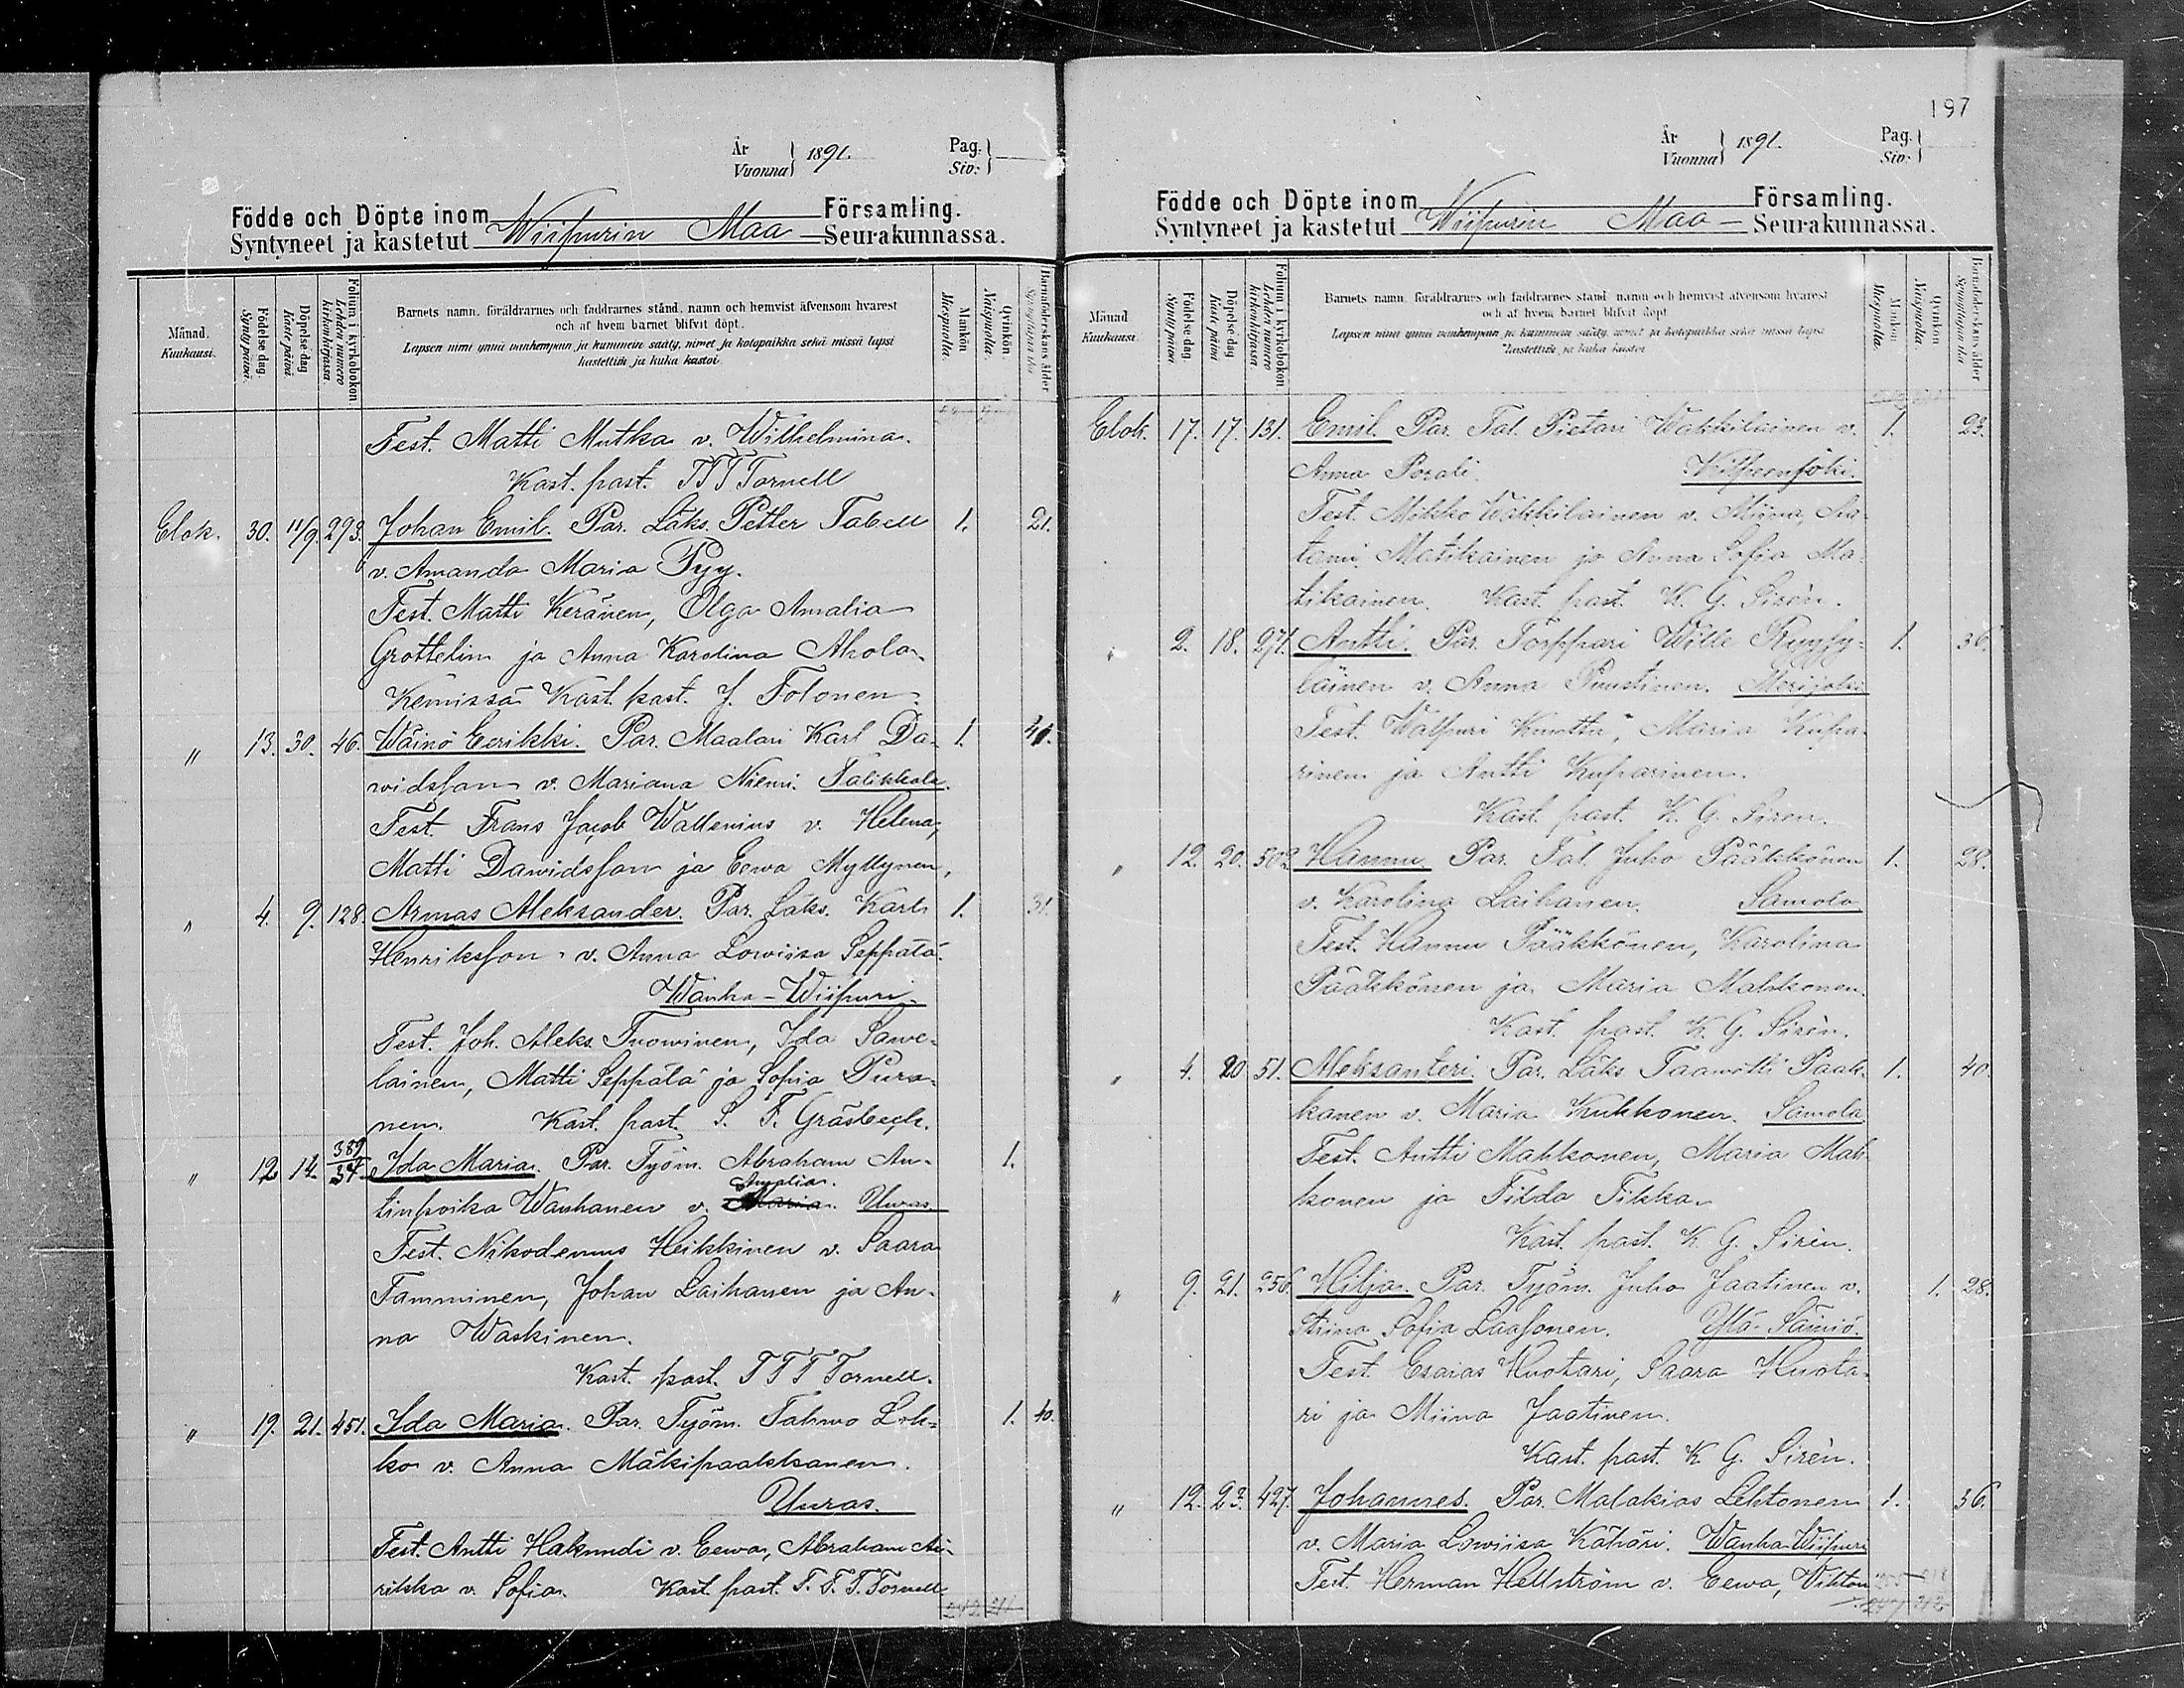 År
Vuonna } 1891.
Pag.
Siv. }
Födde och Döpte inom Församling.
Syntyneet ja kastetut Wiipurin Maa Seurakunnassa.
Månad.
Kuukausi.
Födelse dag.
Synty päivä.
Döpelse dag
Kaste päivä.
Folium i kyrkobokon
Lehden numero
kirkonkirjassa.
Barnets namn, föräldrarnes och faddrarnes stånd, namn och hemvist äfvensom hvarest
och af hvem barnet blifvit döpt.
Lapsen nimi ynnä vanhempain ja kummein sääty, nimet ja kotopaikka sekä missä lapsi
kastettiin ja kuka kastoi.
Mankön
Miespuolia.
Qvinkön
Naispuolia.
Barnaföderskans ålder
Synnyttäjän ikä
Test. Matti Mutka v. Wilhelmina.
Kast. past. T T T Tornell
Elok. 30. 11/9. 293. Johan Emil. Par. Läks. Petter Tabell 1. 21.
v. Amanda Maria Pyy.
Test. Matti Keränen, Olga Amalia
Grottelin ja Anna Karolina Ahola.
Kemissä Kast. past. J. Tolonen.
" 13. 30. 46. Wäinö Eerikki. Par. Maalari Karl Da- 1. 41.
widsson v. Mariana Niemi. Talikkala.
Test. Frans Jacob Wallenius v. Helena,
Matti Dawidsson ja Eewa Myllynen,
" 4. 9. 128. Armas Aleksander. Par. Läks. Karl 1. 31.
Henriksson v. Anna Lowiisa Seppälä.
Wanha-Wiipuri.
Test. Joh. Aleks. Tuowinen, Ida Sawo-
lainen, Matti Seppälä ja Sofia Pura-
nen. Kast. past. S. F. Gräsbeck.
" 12. 14. 389/34 Ida Maria. Par. Työm. Abraham An- 1.
Amalia.
tinpoika Wanhanen v. Maria. Uuras
Test. Nikodemus Heikkinen v. Saara
Tamminen, Johan Laihanen ja An-
na Waskinen.
Kast. past. T T T Tornell.
" 19. 21. 451. Ida Maria. Par. Työm. Tahwo Loh- 1. 40.
ko v. Anna Mälkipaakkanen.
Uuras.
Test. Antti Hakundi v. Eewa, Abraham Ai-
rikka v. Sofia. Kast. past. T. T. T. Tornell
242 211
197
År
Vuonna } 1891.
Pag.
Siv. }
Födde och Döpte inom Församling.
Syntyneet ja kastetut Wiipurin Maa- Seurakunnassa.
Månad
Kuukausi.
Födelse dag.
Synty päivä.
Döpelse dag
Kaste päivä
Folium i kyrkobokon
Lehden numero
kirkonkirjassa
Barnets namn, föräldrarnes och faddrarnes stånd, namn och hemvist äfvensom hvarest
och af hvem barnet blifvit döpt
Lapsen nimi ynnä vanhempain ja kummein sääty, nimet ja kotopaikka sekä missä lapsi
kastettiin ja kuka kastoi
Mankön
Miespuolia.
Qvinkön
Naispuolia
Barnaföderskans ålder
Synnyttäjän ikä
Elok. 17. 17. 131. Emil. Par. Tal. Pietari Wakkilainen v. 1. 23.
Anna Porali. Kilpeenjoki.
Test. Mikko Wakkilainen v. Miina, Aa-
tami Matikainen ja Anna Sofia Ma-
tikainen. Kast. past. K. G. Sirèn.
" 2. 18. 271. Antti. Par. Torppari Wille Ryypy- 1. 36.
läinen v. Anna Puustinen. Merijoki
Test. Walpuri Kuntta, Maria Kupa-
rinen ja Antti Kuparinen.
Kast. past. K. G. Siren.
" 12. 20. 302. Hannu. Par. Tal. Juho Pääkkönen 1. 28.
v. Karolina Laihanen. Samola
Test. Hannu Pääkkönen, Karolina
Pääkkönen ja Maria Mahkonen.
Kast. past. K. G. Sirèn.
" 4. 20 51. Aleksanteri. Par. Läks Taawetti Paak- 1. 40.
kanen v. Maria Kukkonen. Samola
Test. Antti Mahkonen, Maria Mah-
konen ja Tilda Tikka.
Kast. past. K. G. Sirèn.
" 9. 21. 256. Hilja. Par. Työm. Juho Jaatinen v. 1. 28.
Stiina Sofia Laasonen. Ylä-Säiniö.
Test. Esaias Huotari, Saara Huota-
ri ja Miina Jaatinen.
Kast. past. K G. Sirèn.
" 12. 23. 427. Johannes. Par. Malakias Lehtonen 1. 36.
v. Maria Lowiisa Kähäri. Wanha-Wiipuri
Test. Herman Hellström v. Eewa, Wiktor
247 212